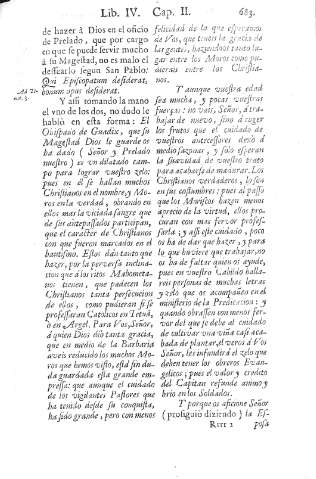 Lib. IV. Cap. II. 683.
de hazer à Dios en el oficio
de Prelado, que por cargo
en que se puede servir mucho
à su Magestad, no es malo el
dessearlo segun San Pablo:
Qui Episcopatum desiderat,
bonum opus desiderat.
Y assi tomando la mano
el vno de los dos, no dudo le
habló en esta forma: El
Obispado de Guadix, que su
Magestad Dios le guarde os
ha dado (Señor y Prelado
nuestro) es vn dilatado campo
para lograr vuestro zelo;
pues en èl se hallan muchos
Christianos en el nombre, y Moros
en la verdad, obrando en
ellos mas la viciada sangre que
de sus antepassados participan,
que el caracter de Christianos
con que fueron marcados en el
bautismo. Estos dàn tanto que
hazer, por la perversa inclinacion
que à los ritos Mahometanos
tienen, que padecen los
Christianos tanta persecucion
de ellos, como pudieran si se
professaran Catolicos en Tetuà,
ò en Argel. Para Vos, Señor,
à quien Dios diò tanta gracia,
que en medio de la Barbaria
aveis reducido los muchos Moros
que hemos visto, està sin duda
guardada esta grande empressa:
que aunque el cuidado
de los vigilantes Pastores que
ha tenido desde su conquista,
ha sido grande, pero con menos
felicidad de la que esperamos
de Vos, que teneis la gracia de
las gentes, haziendoos tanto lugar
entre los Moros como pudierais
entre los Christianos.
Y aunque vuestra edad
sea mucha, y pocas vuestras
fuerças: no vais, Señor, à trabajar
de nuevo, sino à coger
los frutos que el cuidado de
vuestros antecessores dexò à
medio sazonar, y solo esperan
la suavidad de vuestro trato
para acabarse de madurar. Los
Christianos verdaderos, lo son
en sus costumbres: pues al passo
que los Moriscos hazen menos
aprecio de la virtud, ellos procuran
con mas fervor professarla;
y assi este cuidado, poco
os ha de dar que hazer, y para
lo que huviere que trabajar, no
os ha de faltar quien os ayude,
pues en vuestro Cabildo hallareis
personas de muchas letras
y zelo que os acompañen en el
ministerio de la Predicacion: y
quando obrassen con menos fervor
del que se debe al cuidado
de cultivar una viña casi acabada
de plantar, el veros à Vos
Señor, les infundirà el zelo que
deben tener los obreros Evangelicos;
pues el valor y credito
del Capitan refunde animo y
brio en los Soldados.
Y porque os aficione Señor
(prosiguiò diziendo) la Es-
Rrrr 2 posa